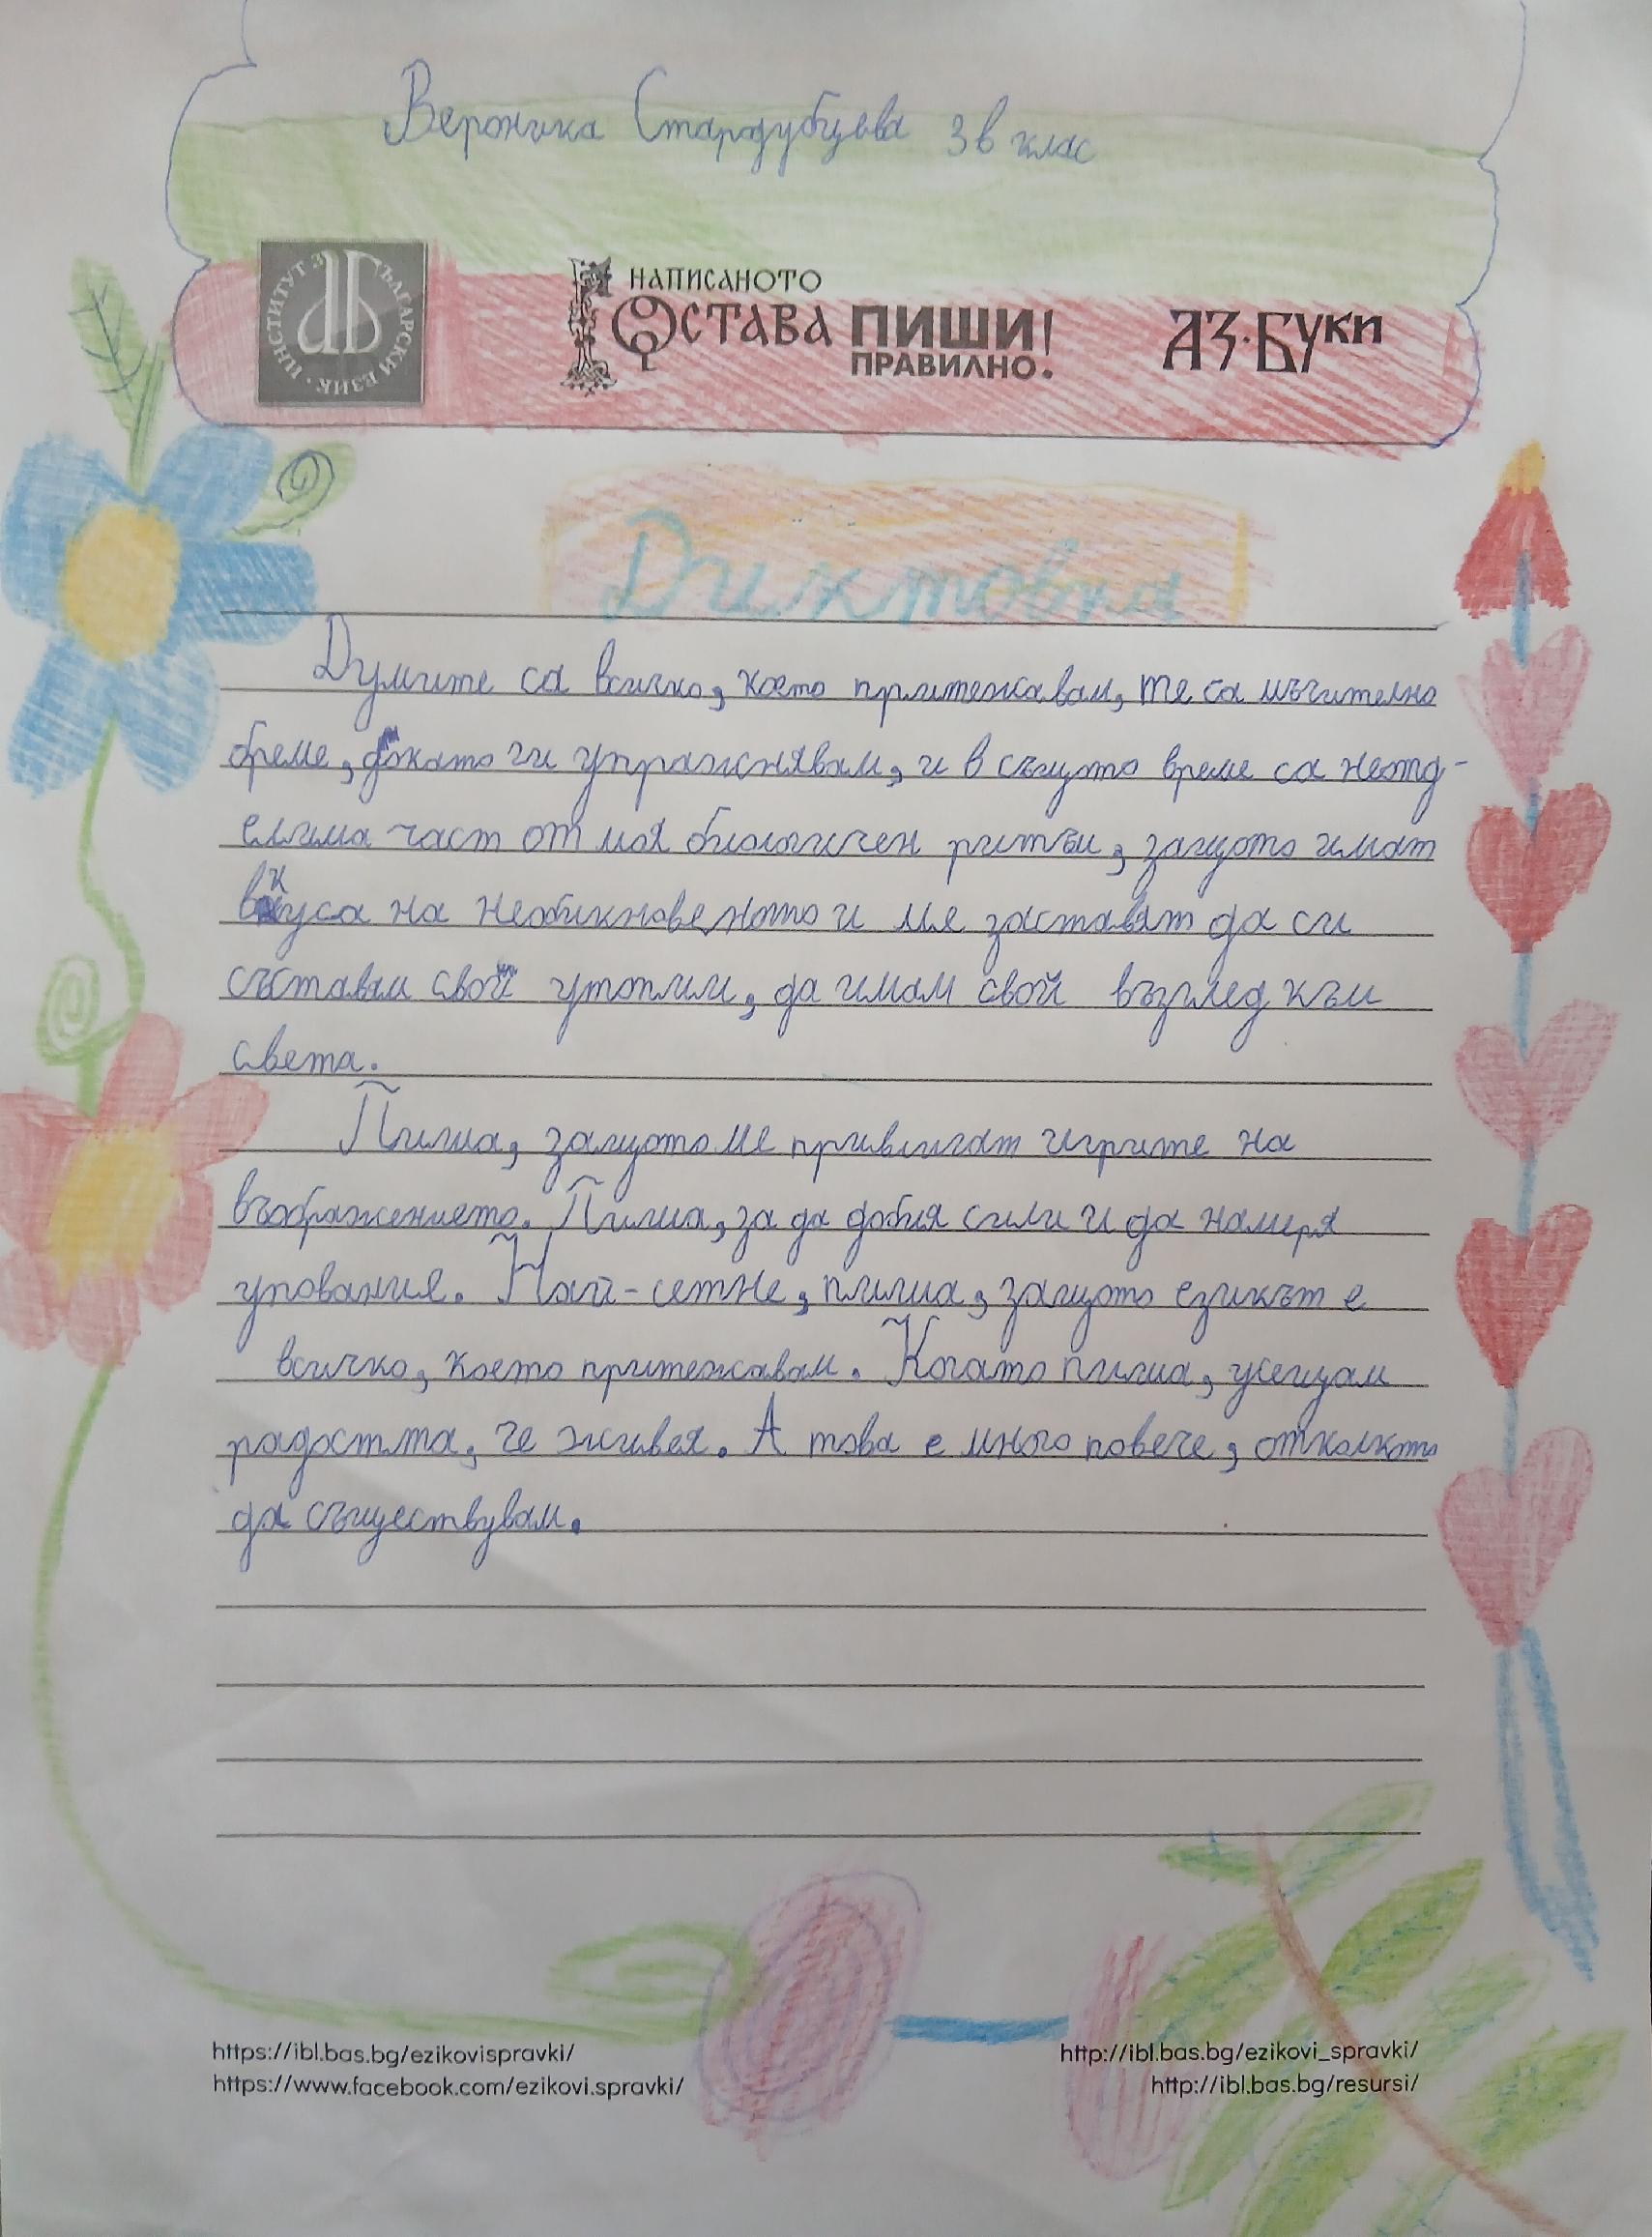 Вероника Стародубцева 3в клас
ИНСТИТУТ ЗА БЪЛГАРСКИ ЕЗИК
НАПИСАНОТО
ОСТАВА ПИШИ!
ПРАВИЛНО.
АЗ·БУКИ
Диктовка
Думите са всичко, което притежавам, те са мъчително
бреме, докато ги упражнявам, и в същото време са неотд-
елима част от моя биологичен ритъм, защото имат
вкуса на необикновеното и ме заставят да си
съставям свои утопии, да имам свой възглед към
света.
Пиша, защото ме привличат игрите на
въображението. Пиша, за да добия сили и да намеря
упования. Най-сетне, пиша, защото езикът е
всичко, което притежавам. Когато пиша, усещам
радостта, че живея. А това е много повече, отколкото
да съществувам.
https://ibl.bas.bg/ezikovispravki/
https://www.facebook.com/ezikovi.spravki/
http://ibl.bas.bg/ezikovi_spravki/
http://ibl.bas.bg/resursi/